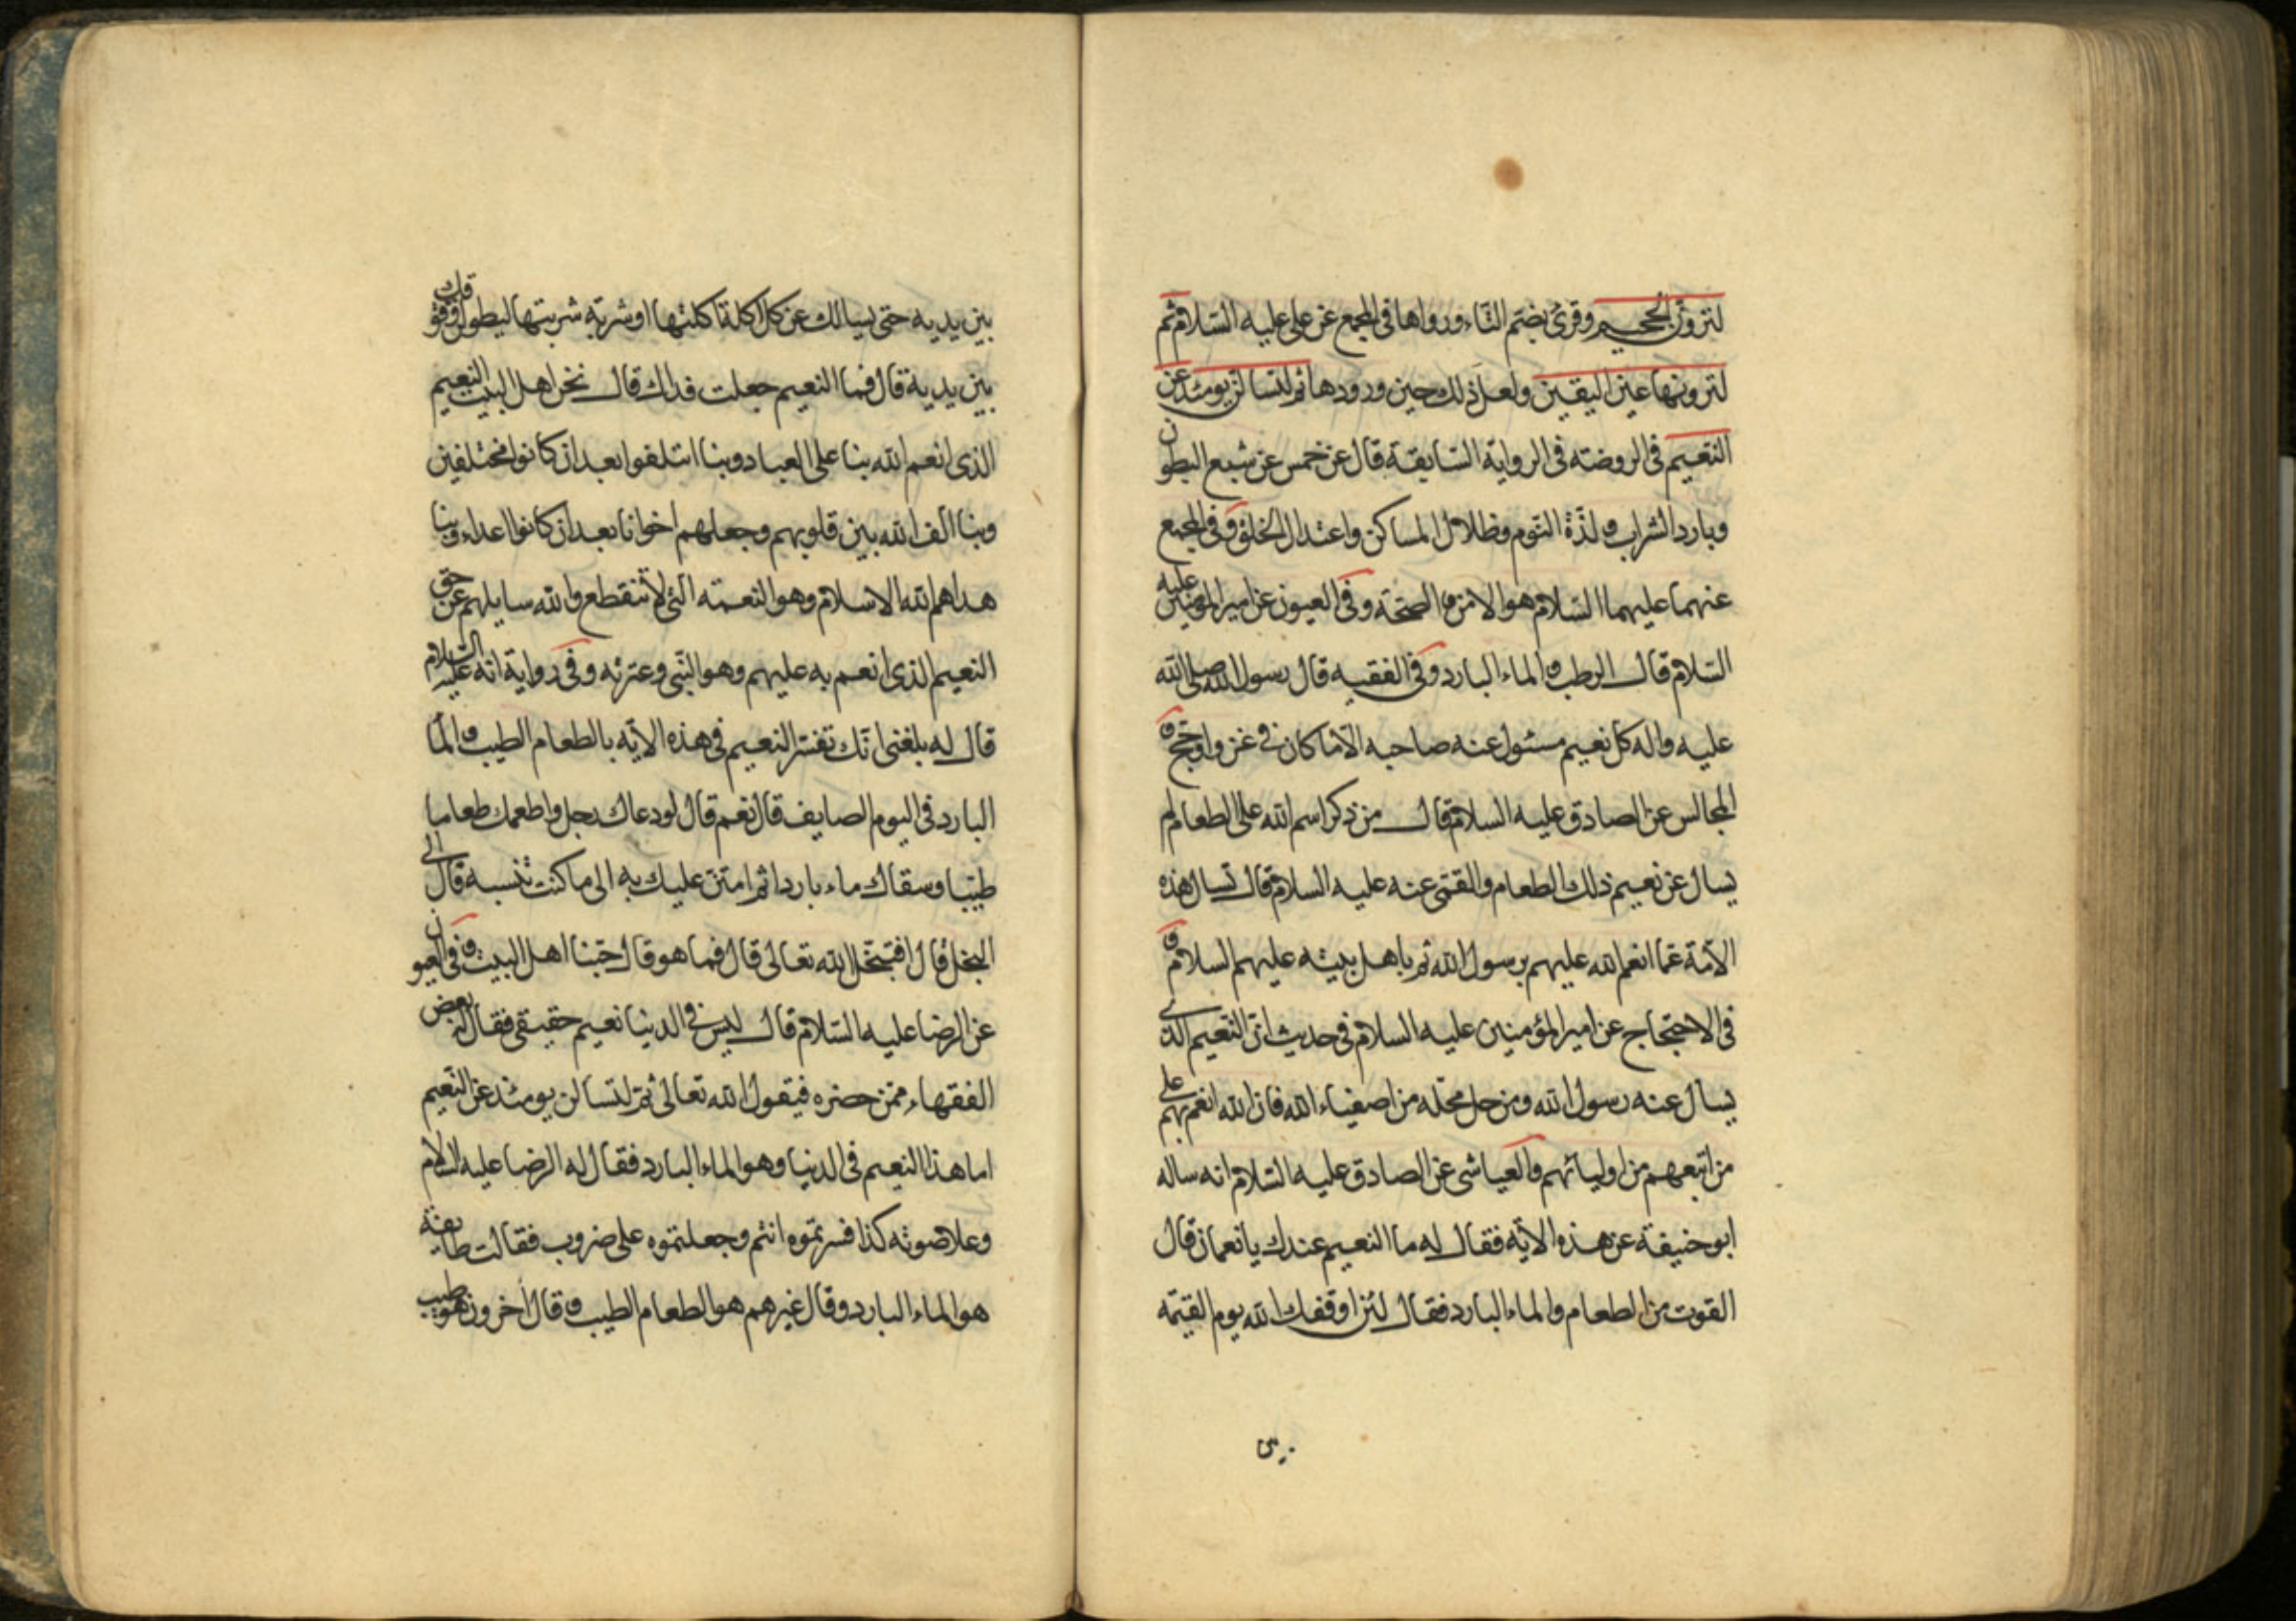 لترون الجحيم وقرئ بضم التاء ورواها في المجمع عن علي عليه السلام ثم
لترونها عين اليقين ولعل ذلك حين ورودها ثم لتسالن يومئذ عن
النعيم في الروضته في الرواية السابقة قال عن خمس عن شبع البطون
وبارد الشراب ولذة النوم وظلال المساكن واعتدال الخلق وفي المجمع
عنهما عليهما السلام هو الامن والصحة وفي العيون عن امير المؤمنين عليه
السلام قال الرطب والماء البارد وفي الفقيه قال رسول الله صلى الله
عليه واله كل نعيم مسئول عنه صاحبه الا ما كان في غزو او حج و
المجالس عن الصادق عليه السلام قال من ذكر اسم الله على الطعام لم
يسال عن نعيم ذلك الطعام والقمي عنه عليه السلام قال تسال هذه
الامة عما انعم الله عليهم برسول الله ثم باهل بيته عليهم السلام و
في الاحتجاج عن امير المؤمنين عليه السلام في حديث ان النعيم الذي
يسال عنه رسول الله ومن حل محله من اصفياء الله فان الله انعم بهم على
من اتبعهم من اوليائهم والعياشي عن الصادق عليه السلام انه ساله
ابو حنيفة عن هذه الاية فقال له ما النعيم عندك يا نعمان قال
القوت من الطعام والماء البارد فقال لئن اوقفك الله يوم القيمة
بين يديه حتى يسالك عن كل اكلة اكلتها او شربة شربتها ليطولن وقوفك
بين يديه قال فما النعيم جعلت فداك قال نحن اهل البيت النعيم
الذي انعم الله بنا على العباد وبنا ائتلفوا بعد ان كانوا مختلفين
وبنا الف الله بين قلوبهم وجعلهم اخوانا بعد ان كانوا اعداء وبنا
هداهم الله الاسلام وهو النعمة التي لا تنقطع والله سايلهم عن حق
النعيم الذي انعم به عليهم وهو النبي وعترته وفي رواية انه عليه السلام
قال له بلغني انك تفسر النعيم في هذه الاية بالطعام الطيب والما
البارد في اليوم الصايف قال نعم قال لو دعاك رجل واطعمك طعاما
طيبا وسقاك ماء باردا ثم امتن عليك به الى ما كنت تنسبه قال الى
البخل قال افتبخل الله تعالى قال فما هو قال حبنا اهل البيت وفي العيون
عن الرضا عليه السلام قال ليس في الدنيا نعيم حقيقي فقال له بعض
الفقهاء ممن حضره فيقول الله تعالى ثم لتسالن يومئذ عن النعيم
اما هذا النعيم في الدنيا وهو الماء البارد فقال له الرضا عليه السلام
وعلا صوته كذا فسرتموه انتم وجعلتموه على ضروب فقالت طايفة
هو الماء البارد وقال غيرهم هو الطعام الطيب وقال اخرون هو طيب